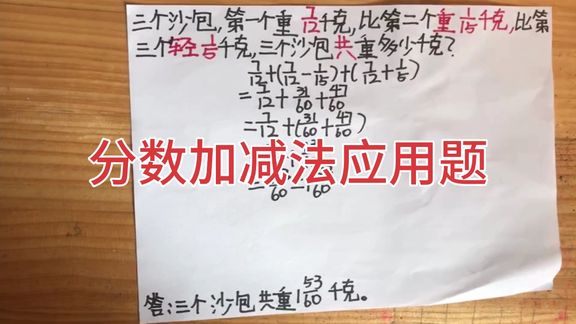 三个沙包,第一个重7/12千克,比第二个重1/15千克,比第
三个轻1/5千克,三个沙包共重多少千克?
7/12+(7/12-1/15)+(7/12+1/5)
=7/12+31/60+47/60
=7/12+(31/60+47/60)
分数加减法应用题
答:三个沙包共重1 53/60千克。